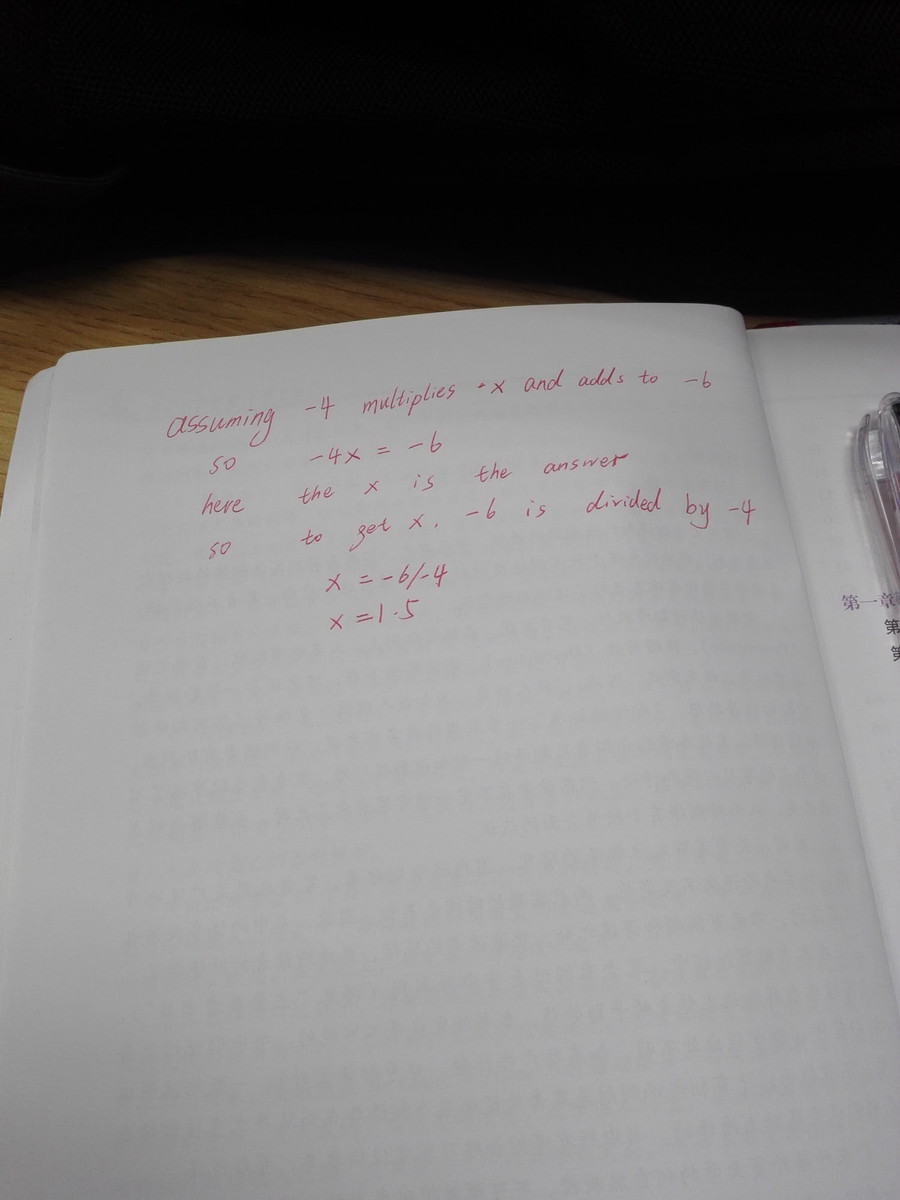 assuming -4 multiplies ·x and adds to -6
so -4x = -6
here the x is the answer
so to get x. -6 is divided by -4
x = -6/-4
x = 1.5
第一章
第
第